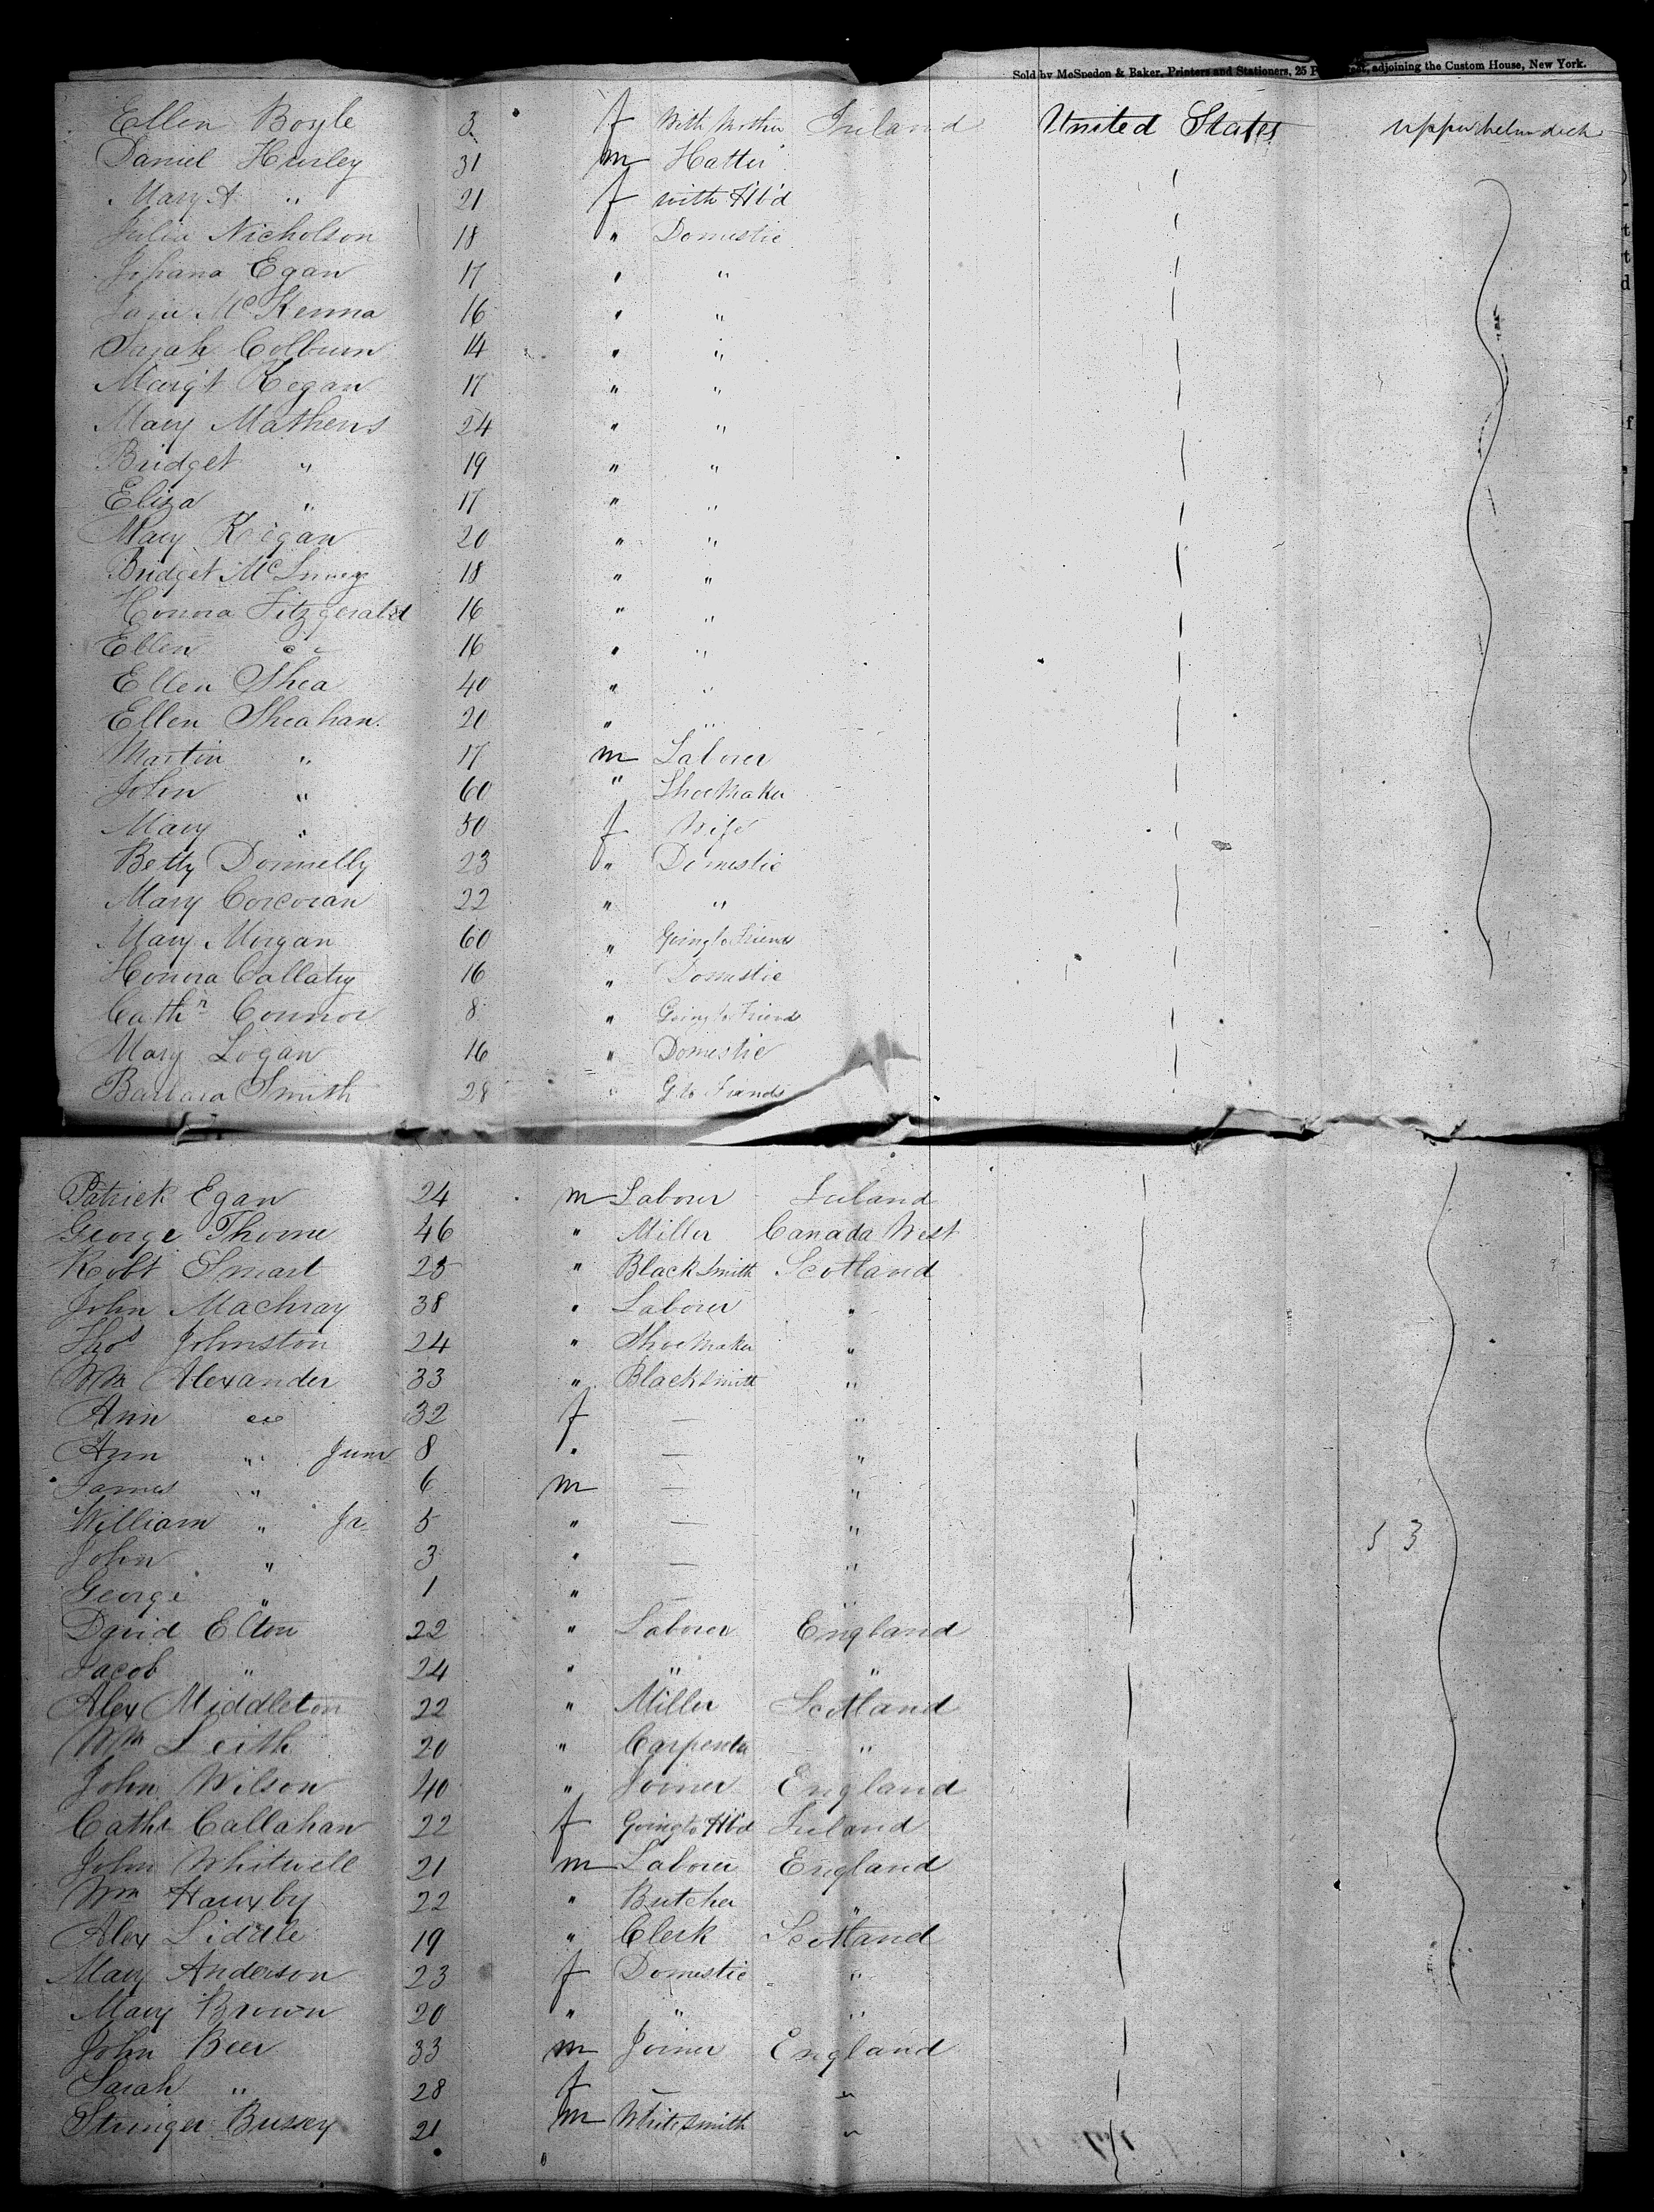 Sold by McSpedon & Baker, Printers and Stationers, 25 adjoining the Custom House, New York.
Ellen Boyle 3 f With Mother Ireland United States upper helm deck
Daniel Hurley 31 m Hatter
Mary A " 21 f with Hb'd
Julia Nicholson 18 " Domestic
Johana Egan 17 " "
Jane McKenna 16 " "
Sarah Colburn 14 " "
Marg't Kegan 17 " "
Mary Mathews 24 " "
Bridget " 19 " "
Eliza " 17 " "
Mary Keegan 20 " "
Bridget 18 " "
Honora Fitzgerald 16 " "
Ellen " 16 " "
Ellen Shea 40 " "
Ellen Sheahan 20 " "
Martin " 17 m Laborer
John " 60 " Shoe Maker
Mary " 50 f Wife
Betty Donnelly 23 " Domestic
Mary Corcoran 22 " "
Mary Morgan 60 " Going to Friends
Honora 16 " Domestic
Cathn Connor 8 " Going to Friends
Mary Logan 16 " Domestic
Barbara Smith 28 " G. to Friends
Patrick Egan 24 m Laborer Ireland
George Thorne 46 " Miller Canada West
Robt Smart 25 " Black Smith Scotland
John Machray 38 " Laborer "
Thos Johnston 24 " Shoe Maker "
Wm Alexander 33 " Blacksmith "
Ann " 32 f — "
Ann " Junr 8 " — "
James " 6 m — "
William " Jr 5 " — "
John " 3 " — " 53
George " 1 " — "
David Elton 22 " Laborer England
Jacob " 24 " " "
Alex Middleton 22 " Miller Scotland
Wm Leith 20 " Carpenter "
John Wilson 40 " Joiner England
Cath Callahan 22 f Going to Hb'd Ireland
John Whitwell 21 m Laborer England
Wm Hauxby 22 " Butcher "
Alex Liddle 19 " Clerk Scotland
Mary Anderson 23 f Domestic "
Mary Brown 20 " " "
John Beer 33 m Joiner England
Sarah " 28 f — "
Stringer Bussey 21 m Whitesmith "